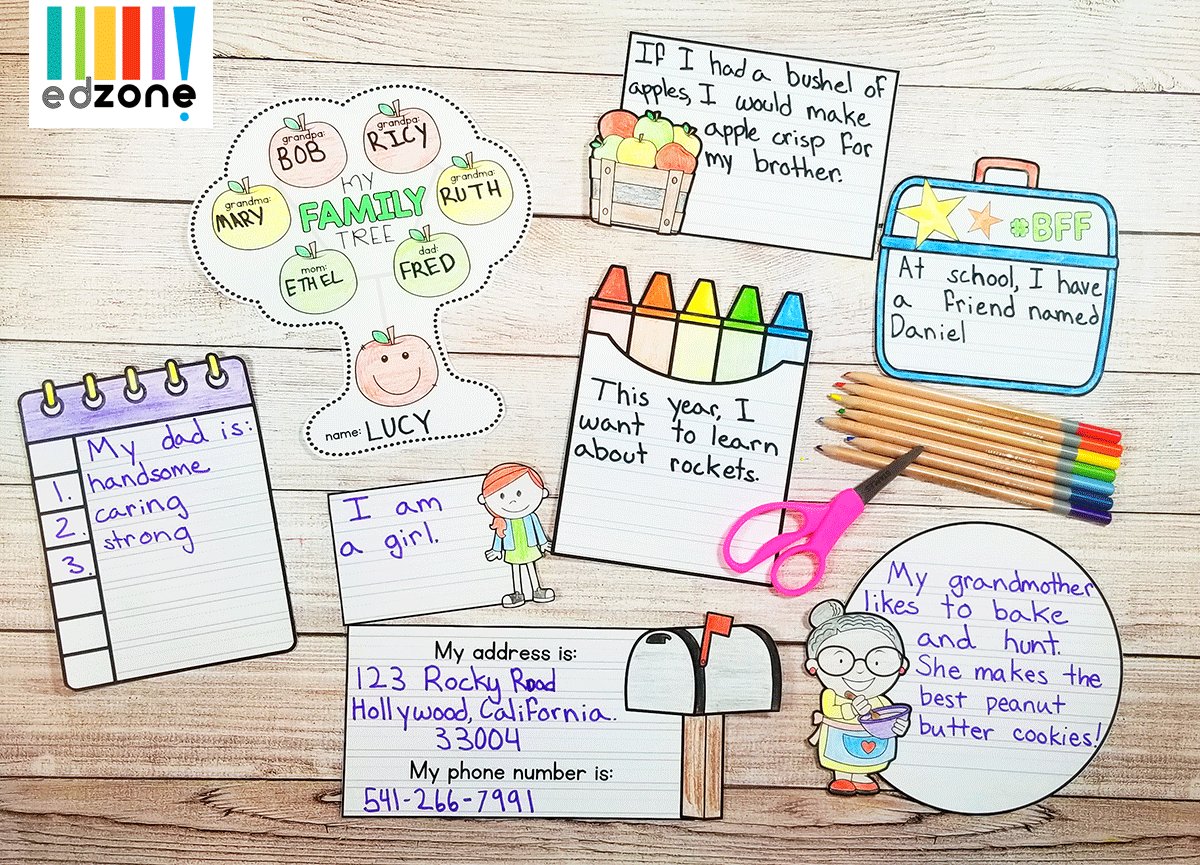 edzone
grandpa:
BOB
grandpa:
RICY
grandma:
MARY
MY
FAMILY
TREE
grandma:
RUTH
mom:
ETHEL
dad:
FRED
name: LUCY
If I had a bushel of
apples, I would make
apple crisp for
my brother.
#BFF
At school, I have
a friend named
Daniel
This year, I
want to learn
about rockets.
My dad is:
1. handsome
2. caring
3. strong
I am
a girl.
My address is:
123 Rocky Road
Hollywood, California.
33004
My phone number is:
541-266-7991
My grandmother
likes to bake
and hunt.
She makes the
best peanut
butter cookies!